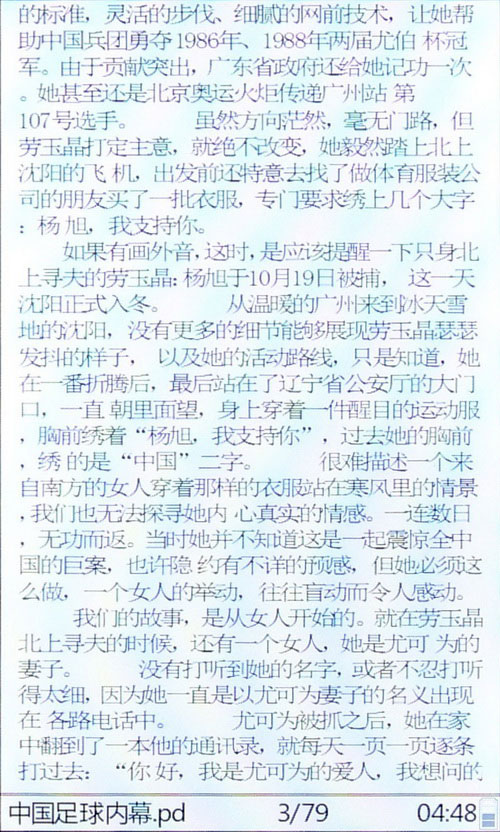 的标准，灵活的步伐、细腻的网前技术，让她帮
助中国兵团勇夺1986年、1988年两届尤伯 杯冠
军。由于贡献突出，广东省政府还给她记功一次
。她甚至还是北京奥运火炬传递广州站 第
107号选手。 虽然方向茫然，毫无门路，但
劳玉晶打定主意，就绝不改变，她毅然踏上北上
沈阳的飞 机，出发前还特意去找了做体育服装公
司的朋友买了一批衣服，专门要求绣上几个大字
：杨 旭，我支持你。
如果有画外音，这时，是应该提醒一下只身北
上寻夫的劳玉晶：杨旭于10月19日被捕， 这一天
沈阳正式入冬。 从温暖的广州来到冰天雪
地的沈阳，没有更多的细节能够展现劳玉晶瑟瑟
发抖的样子， 以及她的活动路线，只是知道，她
在一番折腾后，最后站在了辽宁省公安厅的大门
口，一直 朝里面望，身上穿着一件醒目的运动服
，胸前绣着“杨旭，我支持你”，过去她的胸前
，绣 的是“中国”二字。 很难描述一个来
自南方的女人穿着那样的衣服站在寒风里的情景
，我们也无法探寻她内 心真实的情感。一连数日
，无功而返。当时她并不知道这是一起震惊全中
国的巨案，也许隐 约有不详的预感，但她必须这
么做，一个女人的举动，往往盲动而令人感动。
我们的故事，是从女人开始的。就在劳玉晶
北上寻夫的时候，还有一个女人，她是尤可 为的
妻子。 没有打听到她的名字，或者不忍打听
得太细，因为她一直是以尤可为妻子的名义出现
在 各路电话中。 尤可为被抓之后，她在家
中翻到了一本他的通讯录，就每天一页一页逐条
打过去：“你 好，我是尤可为的爱人，我想问的
中国足球内幕.pd 3/79 04:48